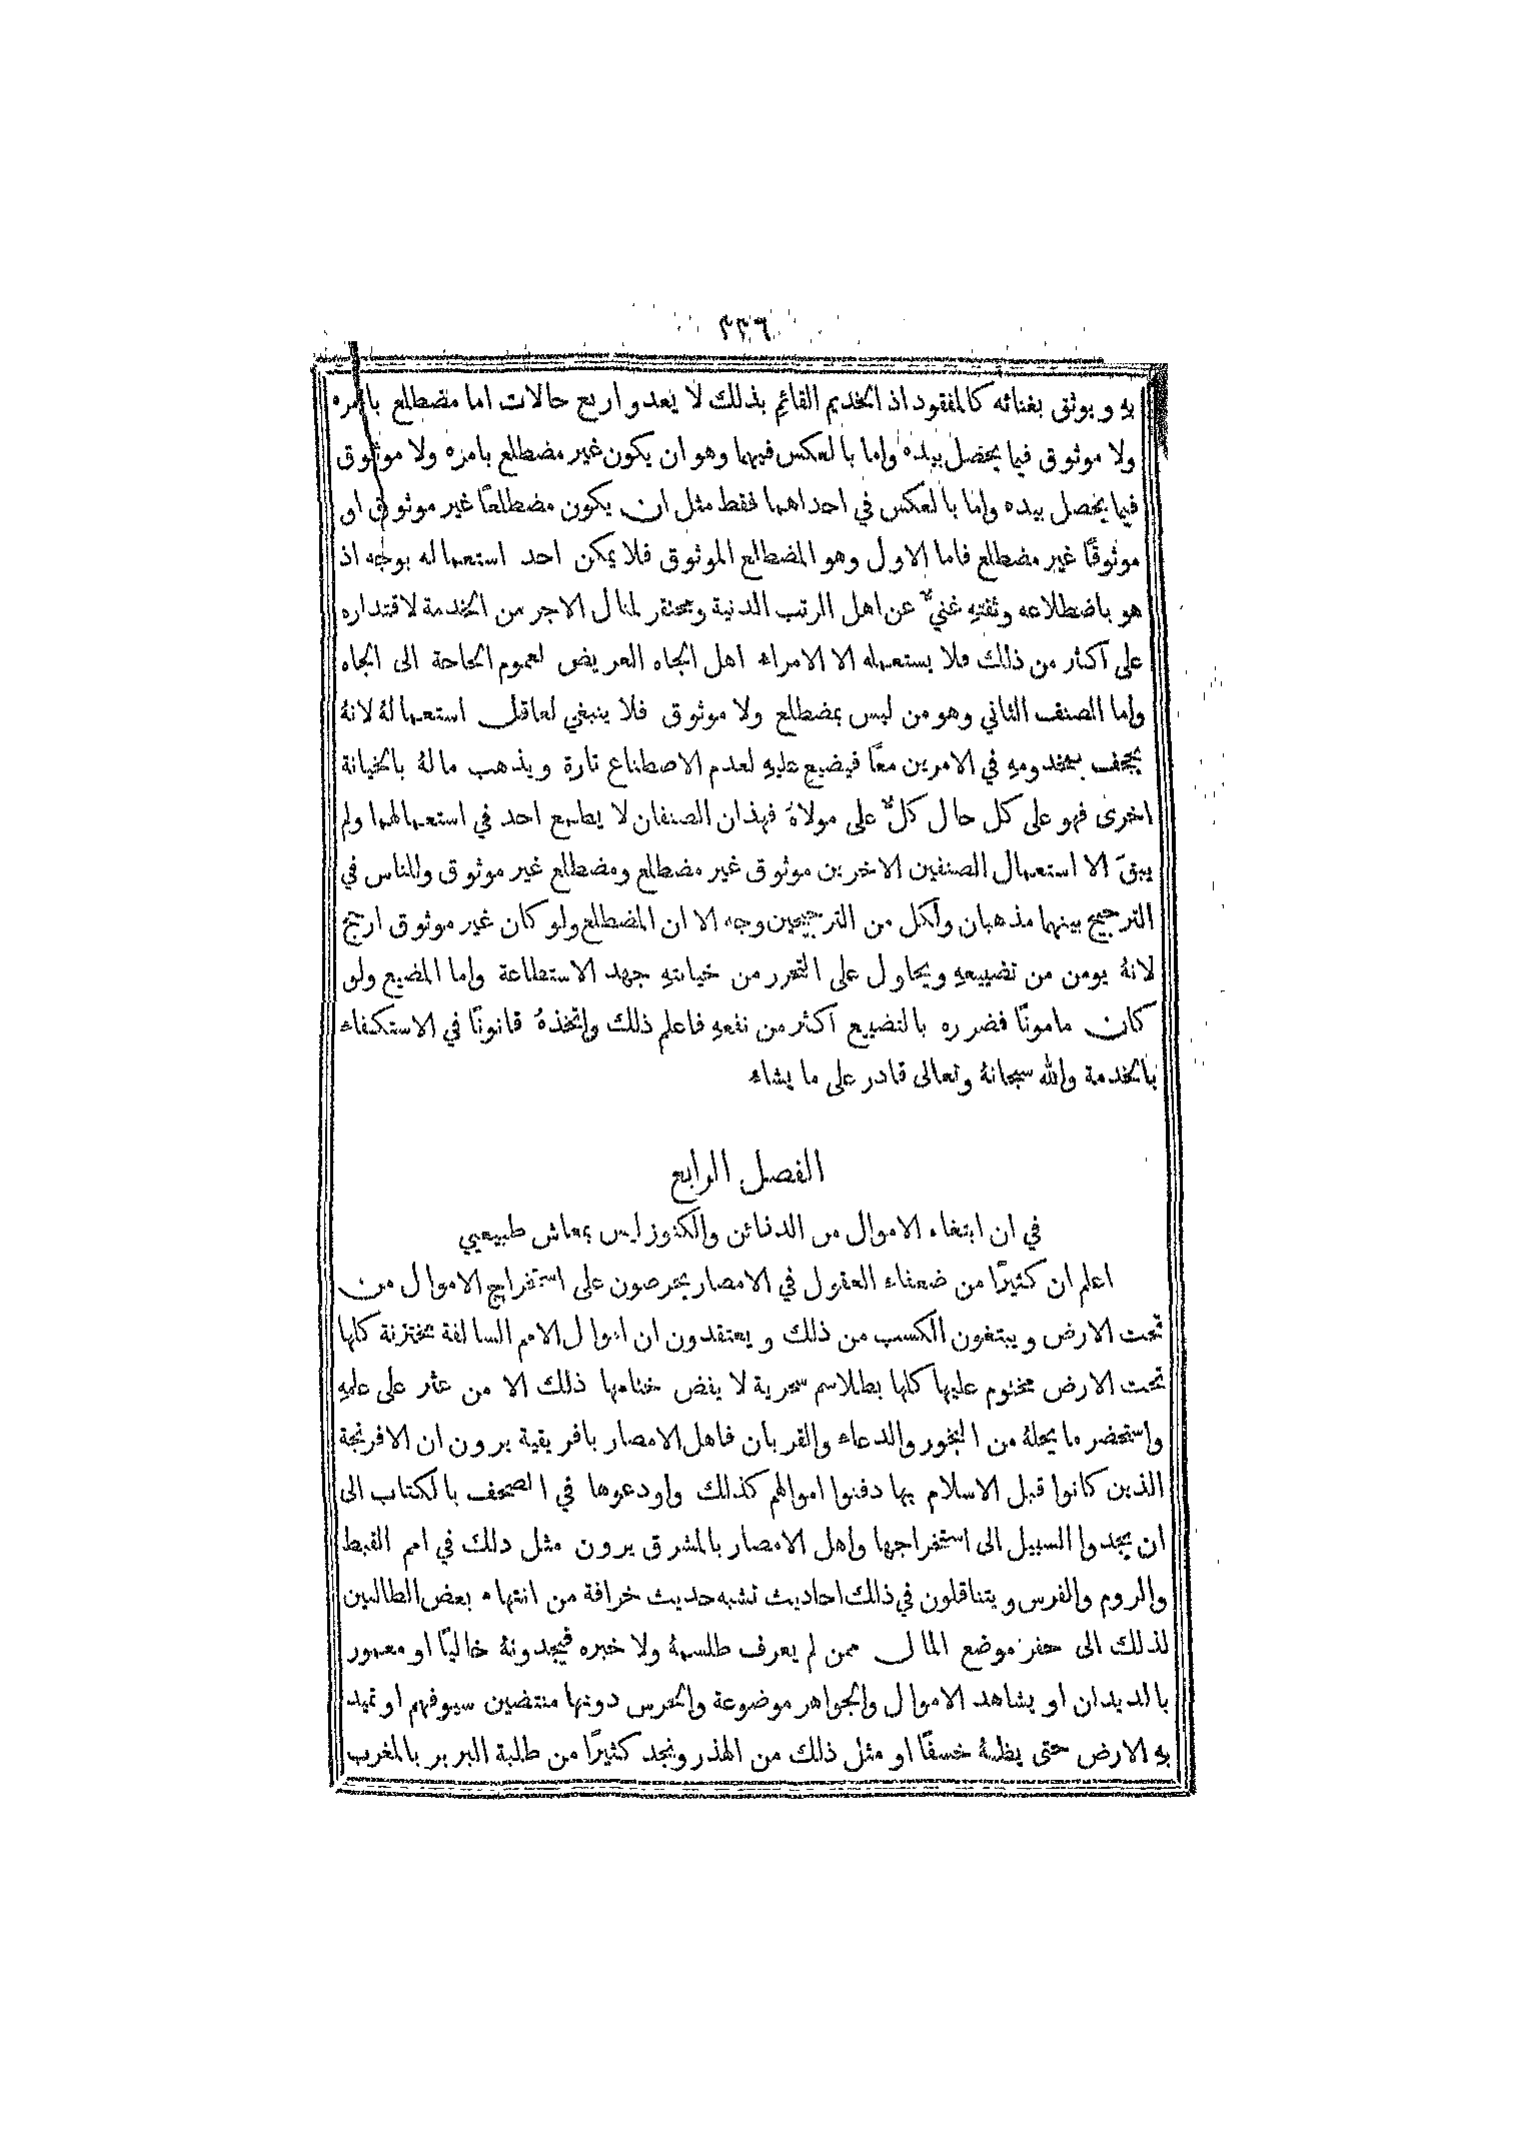 ٣٣٦
بهِ ويوثق بغنائه كالمفقود اذ الخديم القائم بذلك لا يعدو اربع حالات اما مضطلع بامره
ولا موثوق فيما يحصل بيده واما بالعكس فيهما وهو ان يكون غير مضطلع بامره ولا موثوق
فيما يحصل بيده واما بالعكس في احداهما فقط مثل ان يكون مضطلعًا غير موثوق او
موثوقًا غير مضطلع فاما الاول وهو المضطلع الموثوق فلا يمكن احد استعماله بوجه اذ
هو باضطلاعه وثقتهِ غنيٌّ عن اهل الرتب الدنية ومحتقر لمنال الاجر من الخدمة لاقتداره
على اكثر من ذلك فلا يستعمله الا الامراء اهل الجاه العريض لعموم الحاجة الى الجاه
واما الصنف الثاني وهو من ليس بمضطلع ولا موثوق فلا ينبغي لعاقل استعمالهُ لانهُ
يجحف بمخدومهِ في الامرين معًا فيضيع عليهِ لعدم الاصطناع تارة ويذهب مالهُ بالخيانة
اخرى فهو على كل حال كلٌّ على مولاهُ فهذان الصنفان لا يطمع احد في استعمالهما ولم
يبقَ الا استعمال الصنفين الاخرين موثوق غير مضطلع ومضطلع غير موثوق وللناس في
الترجيح بينهما مذهبان ولكل من الترجيحين وجه الا ان المضطلع ولو كان غير موثوق ارجح
لانهُ يومن من تضييعهِ ويحاول على التحرر من خيانتهِ جهد الاستطاعة واما المضيع ولو
كان مامونًا فضرره بالتضييع اكثر من نفعهِ فاعلم ذلك واتخذهُ قانونًا في الاستكفاء
بالخدمة والله سبحانهُ وتعالى قادر على ما يشاء
الفصل الرابع
في ان ابتغاء الاموال من الدفائن والكنوز ليس بمعاش طبيعيي
اعلم ان كثيرًا من ضعفاء العقول في الامصار يحرصون على استخراج الاموال من
تحت الارض ويبتغون الكسب من ذلك ويعتقدون ان اموال الامم السالفة مختزنة كلها
تحت الارض مختوم عليها كلها بطلاسم سحرية لا يفض ختامها ذلك الا من عثر على علمهِ
واستحضر ما يحلهُ من البخور والدعاء والقربان فاهل الامصار بافريقية يرون ان الافرنجة
الذين كانوا قبل الاسلام بها دفنوا اموالهم كذلك واودعوها في الصحف بالكتاب الى
ان يجدوا السبيل الى استخراجها واهل الامصار بالمشرق يرون مثل ذلك في امم القبط
والروم والفرس ويتناقلون في ذلك احاديث تشبه حديث خرافة من انتهاء بعض الطالبين
لذلك الى حفر موضع المال ممن لم يعرف طلسمهُ ولا خبره فيجدونهُ خاليًا او معمور
بالديدان او يشاهد الاموال والجواهر موضوعة والحرس دونها منتضين سيوفهم او تميد
بهِ الارض حتى يظنهُ خسفًا او مثل ذلك من الهذر ونجد كثيرًا من طلبة البربر بالمغرب